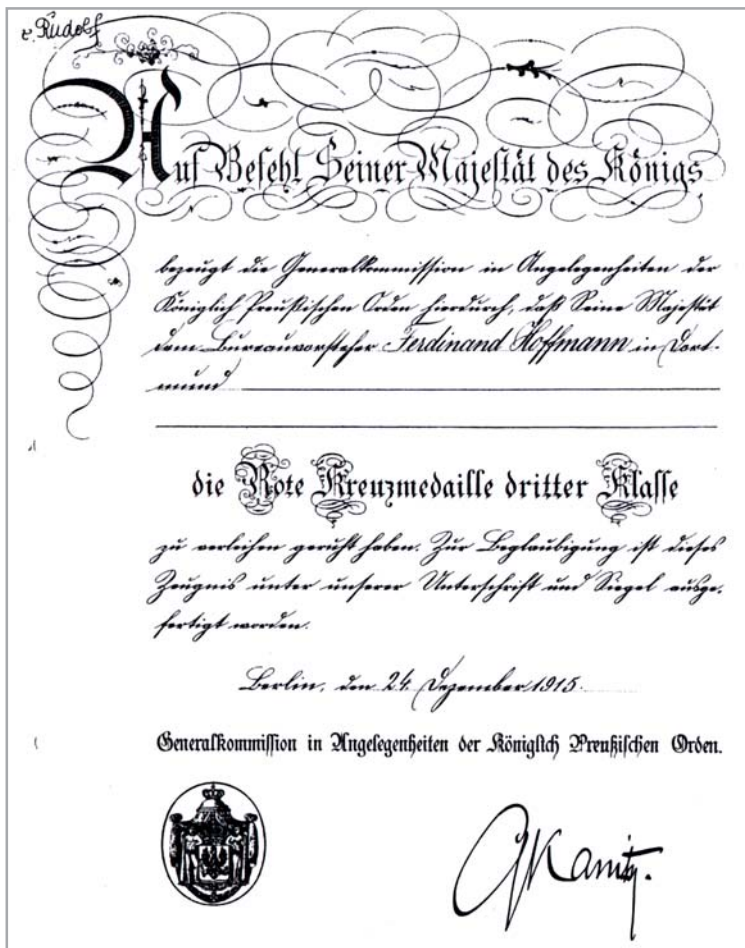 v. Rudolf
Auf Befehl Seiner Majestät des Königs
bezeugt die Generalkommission in Angelegenheiten der
Königlich Preußischen Orden hierdurch, daß Seine Majestät
dem Bureauvorsteher Ferdinand Hoffmann in Dort-
mund
die Rote Kreuzmedaille dritter Klasse
zu verleihen geruht haben. Zur Beglaubigung ist dieses
Zeugnis unter unserer Unterschrift und Siegel ausge-
fertigt worden.
Berlin, den 24. Dezember 1915.
Generalkommission in Angelegenheiten der Königlich Preußischen Orden.
GKanitz.